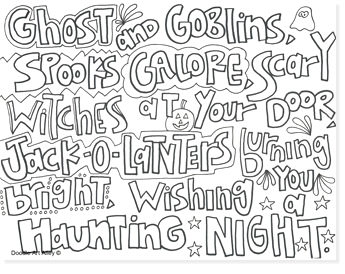 GHOST and GOBLINS,
SPOOKS GALORE, SCARY
WITCHES at Your DOOR,
JACK-O-LaTNTERS burning
bright, Wishing YOU a
Haunting NIGHT.
Doodle Art Alley ©